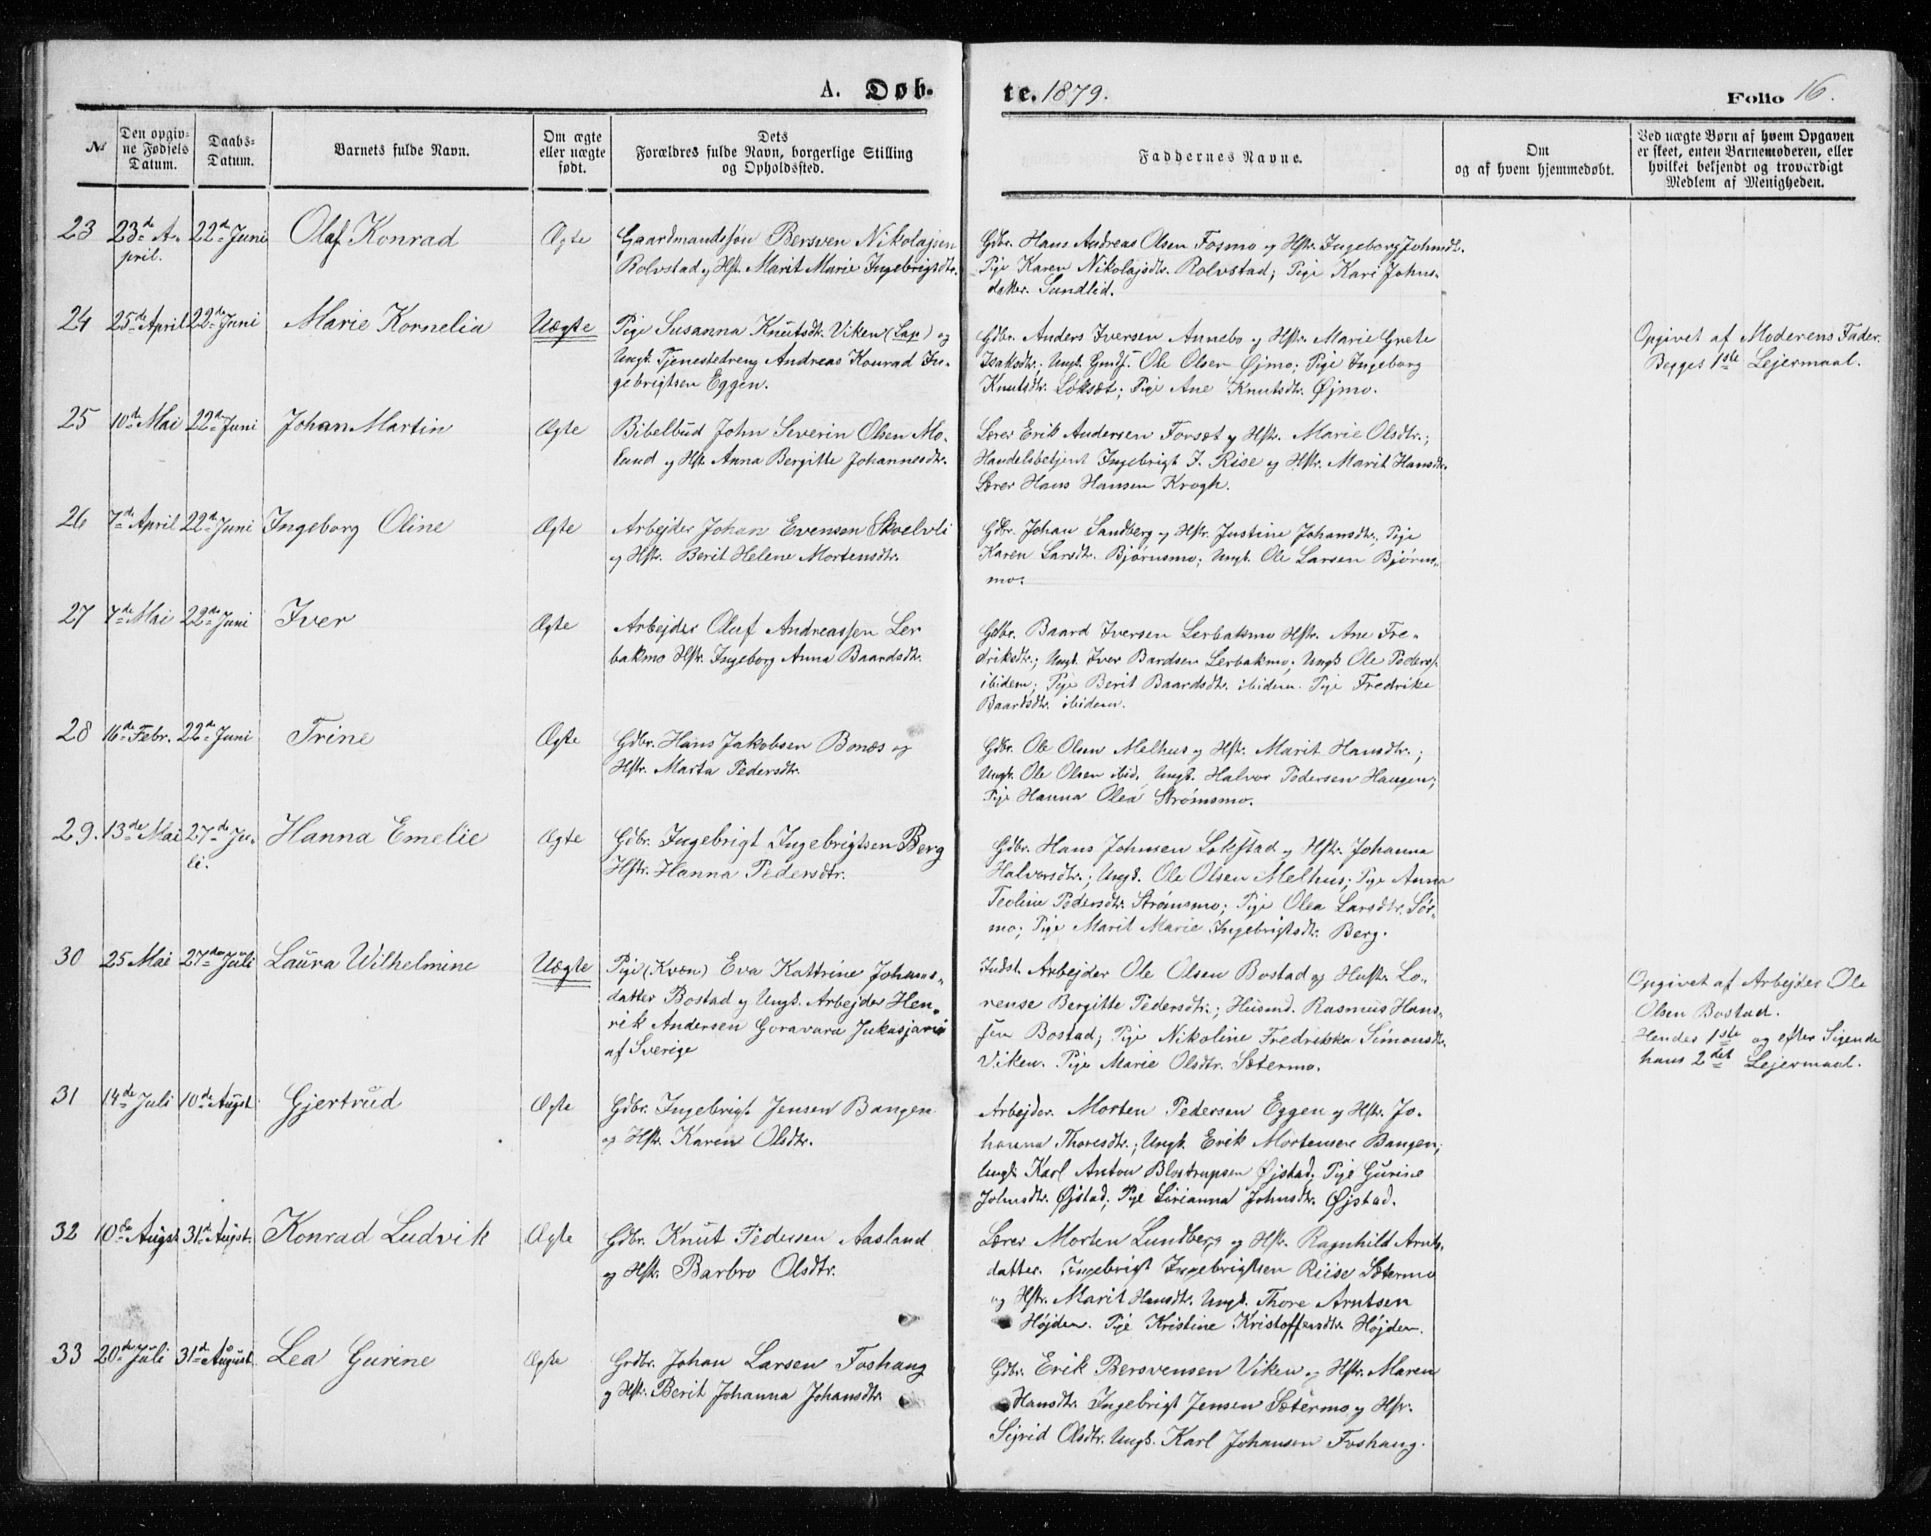 A. Døbte. 1879. Folio 16.
№
Den opgivne Fødsels Datum.
Daabs-Datum.
Barnets fulde Navn.
Om ægte eller uægte født.
Dets Forældres fulde Navn, borgerlige Stilling og Opholdssted.
Faddernes Navne.
Om og af hvem hjemmedøbt.
Ved uægte Børn af hvem Opgaven er skeet, enten Barnemoderen, eller hvilket bekjendt og troværdigt Medlem af Menigheden.
23 23de A- 22de Juni Olaf Konrad Ægte Gaardmandssøn Bersven Nikolajsen
pril. Rolvstad og Hstr. Marit Marie Ingebrigtsdtr.
Gdbr. Hans Andreas Olsen Fosmo og Hstr. Ingeborg Johnsdtr.
Pige Karen Nikolajsdtr. Rolvstad; Pige Kari Johns-
datter Sundlid.
24 25de April 22de Juni Marie Kornelia Uægte Pige Susanna Knutsdtr. Viken (Lap) og
Ungk. Tjenestedreng Andreas Konrad In-
gebrigtsen Eggen.
Gdbr. Anders Iversen Annebo og Hstr. Marie Grete
Isaksdtr.; Ungk. Gmdss. Ole Olsen Øjmo; Pige Ingeborg
Knutsdtr. Løksæt; Pige Ane Knutsdtr. Øjmo.
Opgivet af Moderens Fader.
Begges 1ste Lejermaal.
25 10de Mai 22de Juni Johan Martin Ægte Bibelbud John Severin Olsen Mo-
lund og Hstr. Anna Bergitte Johannesdtr.
Lærer Erik Andersen Forsæt og Hstr. Marie Olsdtr.;
Handelsbetjent Ingebrigt J. Rise og Hstr. Marit Hansdtr.
Lærer Hans Hansen Krogh.
26 7de April 22de Juni Ingeborg Oline Ægte Arbejder Johan Evensen Skoelvli
og Hstr. Berit Helene Mortensdtr.
Gdbr. Johan Sandberg og Hstr. Justine Johansdtr.; Pige
Karen Larsdtr. Bjørnsmo; Ungk. Ole Larsen Bjørns-
mo.
27 7de Mai 22de Juni Iver Ægte Arbejder Oluf Andreassen Ler
bakmo Hstr. Ingeborg Anna Baardsdtr.
Gdbr. Baard Iversen Lerbakmo Hstr. Ane Fre-
driksdtr.; Ungk. Iver Bardsen Lerbakmo; Ungk Ole Peders.
ibidem; Pige Berit Baardsdtr. ibidem. Pige Fredrike
Baardsdtr. ibidem.
28 16de Febr. 22de Juni Trine Ægte Gdbr. Hans Jakobsen Bonæs og
Hstr. Marta Pedersdtr.
Gdbr. Ole Olsen Melhus og Hstr. Marit Hansdtr.;
Ungk. Ole Olsen ibid. Ungk. Halvor Pedersen Haugen;
Pige Hanna Olea Strømsmo.
29. 13de Mai 27de Ju- Hanna Emelie Ægte Gdbr. Ingebrigt Ingebrigtsen Berg
li. Hstr. Hanna Pedersdtr.
Gdbr. Hans Johnsen Lokstad og Hstr. Johanna
Halvorsdtr.; Ungk. Ole Olsen Melhus; Pige Anna
Teoline Pedersdtr. Strømsmo; Pige Olea Larsdtr. Sør-
mo; Pige Marit Marie Ingebrigtsdtr. Berg.
30 25 Mai 27de Juli Laura Wilhelmine Uægte Pige (Kvæn) Eva Kattrine Johans-
datter Bostad og Ungk. Arbejder Hen-
rik Andersen Goravara Jukasjarvi
af Sverige
Indst. Arbejder Ole Olsen Bostad og Hustr. Lo-
rense Bergitte Pedersdtr.; Husmd. Rasmus Hans-
sen Bostad; Pige Nikoline Fredrikka Simonsdtr.
Viken. Pige Marie Olsdtr. Sætermo.
Opgivet af Arbejder Ole
Olsen Bostad.
Hendes 1ste og efter Sigende
hans 2det Lejermaal.
31 14de Juli 10de Augst. Gjertrud Ægte Gdbr. Ingebrigt Jensen Bangen
og Hstr. Karen Olsdtr.
Arbejder. Morten Pedersen Eggen og Hstr. Jo-
hanna Thoresdtr.; Ungk. Erik Mortensen Bangen;
Ungk Karl Anton Blostrupsen Øjstad; Pige Gurine
Johnsdtr. Øjstad; Pige Sirianna Johnsdtr. Øjstad.
32 10de Augst. 31te Augst. Konrad Ludvik Ægte Gdbr. Knut Pedersen Aasland
og Hstr. Barbro Olsdtr.
Lærer Morten Lundberg og Hstr. Ragnhild Arnts-
datter. Ingebrigt Ingebrigtsen Riise Sætermo
og Hstr. Marit Hansdtr. Ungk. Thore Arntsen
Højden. Pige Kristine Kristoffersdtr. Højden.
33 20de Juli 31te August. Lea Gurine Ægte Grdbr. Johan Larsen Foshaug
og Hstr. Berit Johanna Johansdtr.
Gdbr. Erik Bersvensen Viken og Hstr. Maren
Hansdtr. Ingebrigt Jensen Sætermo og Hstr.
Sigrid Olsdtr. Ungk. Karl Johansen Foshaug.